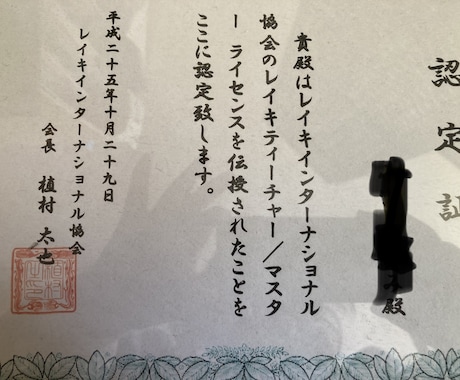 認定証
殿
貴殿はレイキインターナショナル
協会のレイキティーチャー／マスタ
ー ライセンスを伝授されたことを
ここに認定致します。
平成二十五年十月二十九日
レイキインターナショナル協会
会長 植村 太也